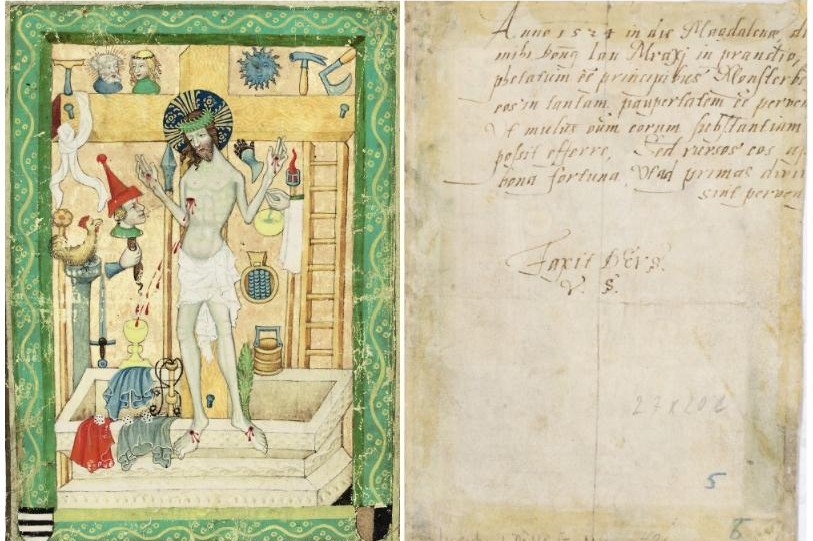 Anno 1524 in die Magdalenæ di
mihi bona Ian Mraxj in pranctio,
phetatum ee principibus Monsterbe
eos in tantam paupertatem ee perven
Vt mulus eorum substantiam
possit efferre, Sed rursos eos a
bona fortuna, Vlad primas divi
sint perven
Faxit DEVS.
V. S.
27 x 20 2
5